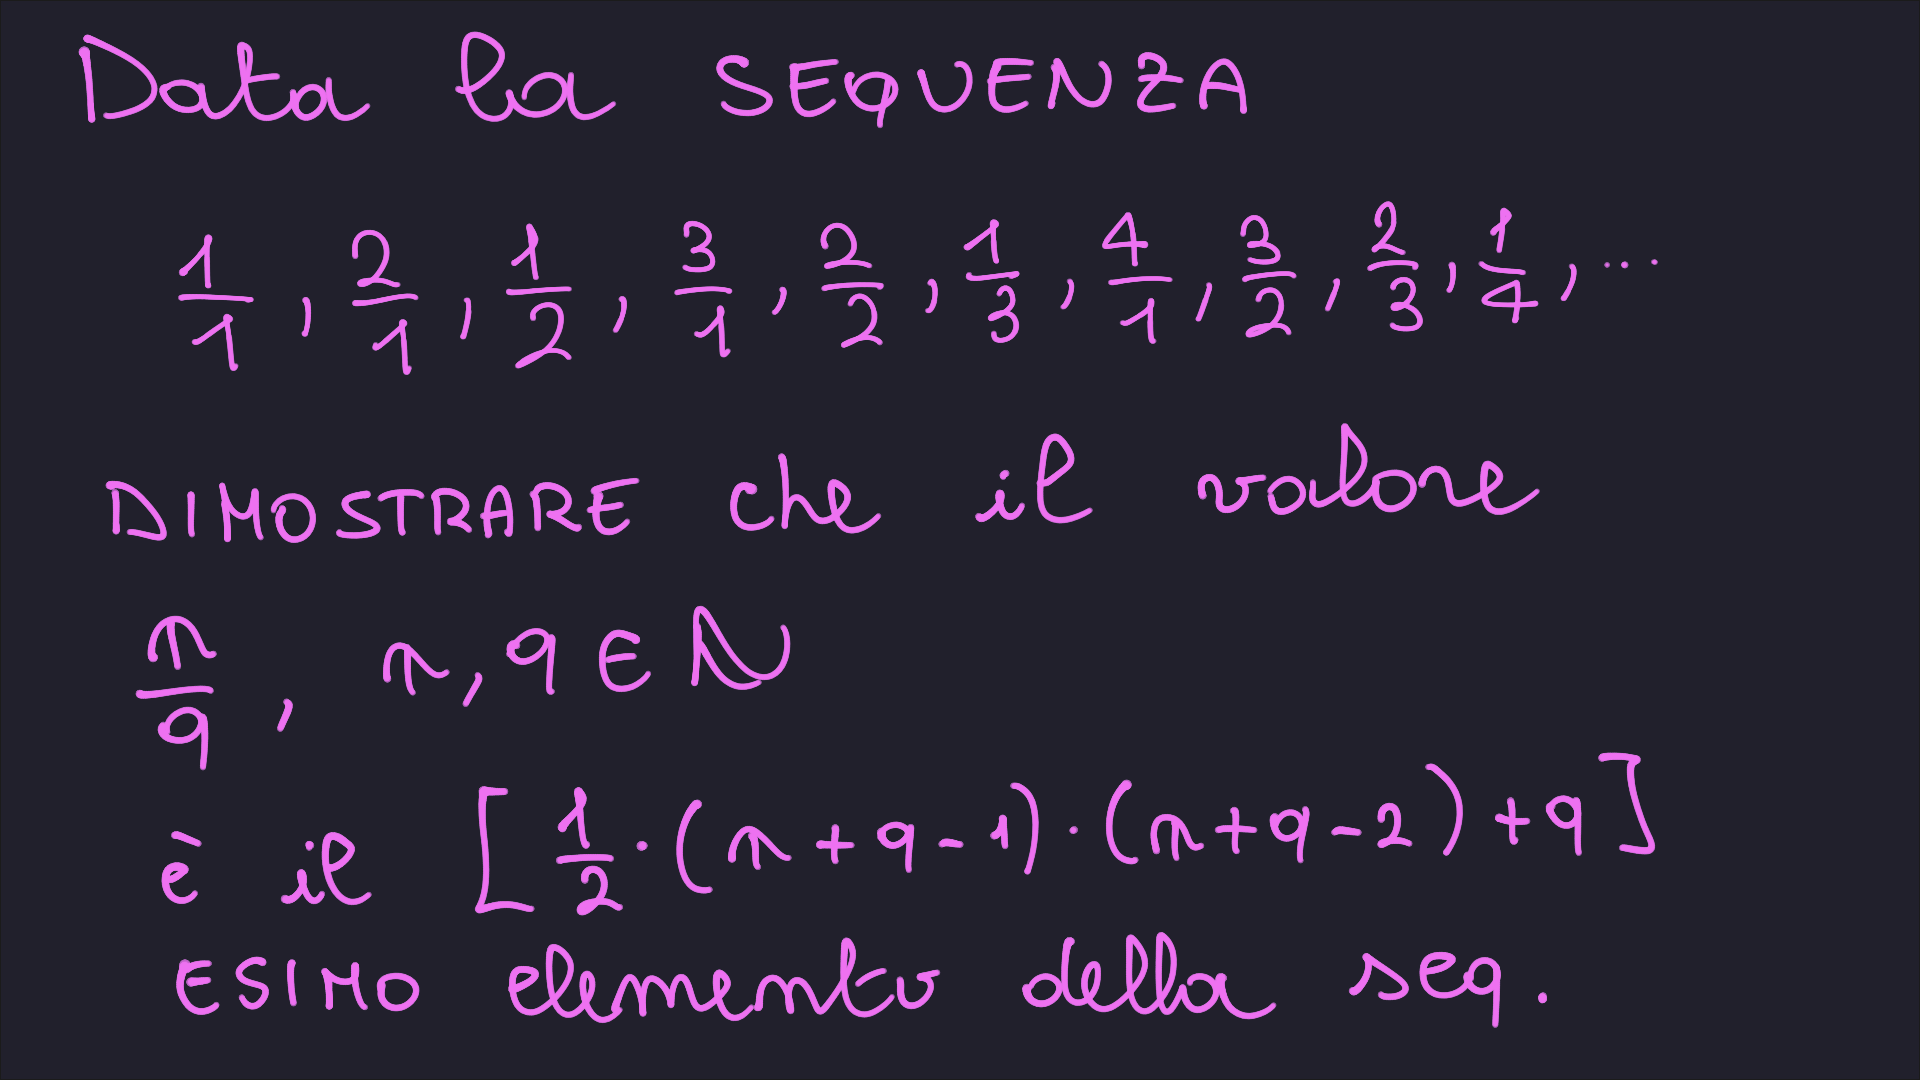 Data la SEQUENZA
1/1, 2/1, 1/2, 3/1, 2/2, 1/3, 4/1, 3/2, 2/3, 1/4, ...
DIMOSTRARE che il valore
n/q, n, q ∈ ℕ
è il [1/2 · (n + q - 1) · (n + q - 2) + q]
ESIMO elemento della seq.